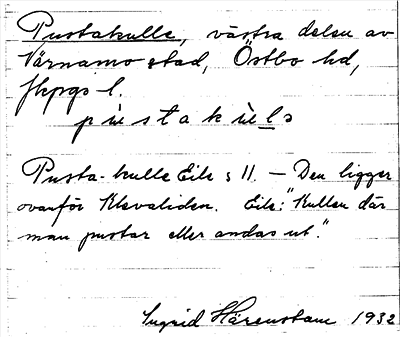 Pustakulle, västra delen av
Värnamo stad, Östbo hd,
Jkpgs l.
pùstakùlə
Pusta-kulle Eik s 11. — Den ligger
ovanför Klevaliden. Eik: "Kullen där
man pustar eller andas ut."
Ingrid Härenstam 1932